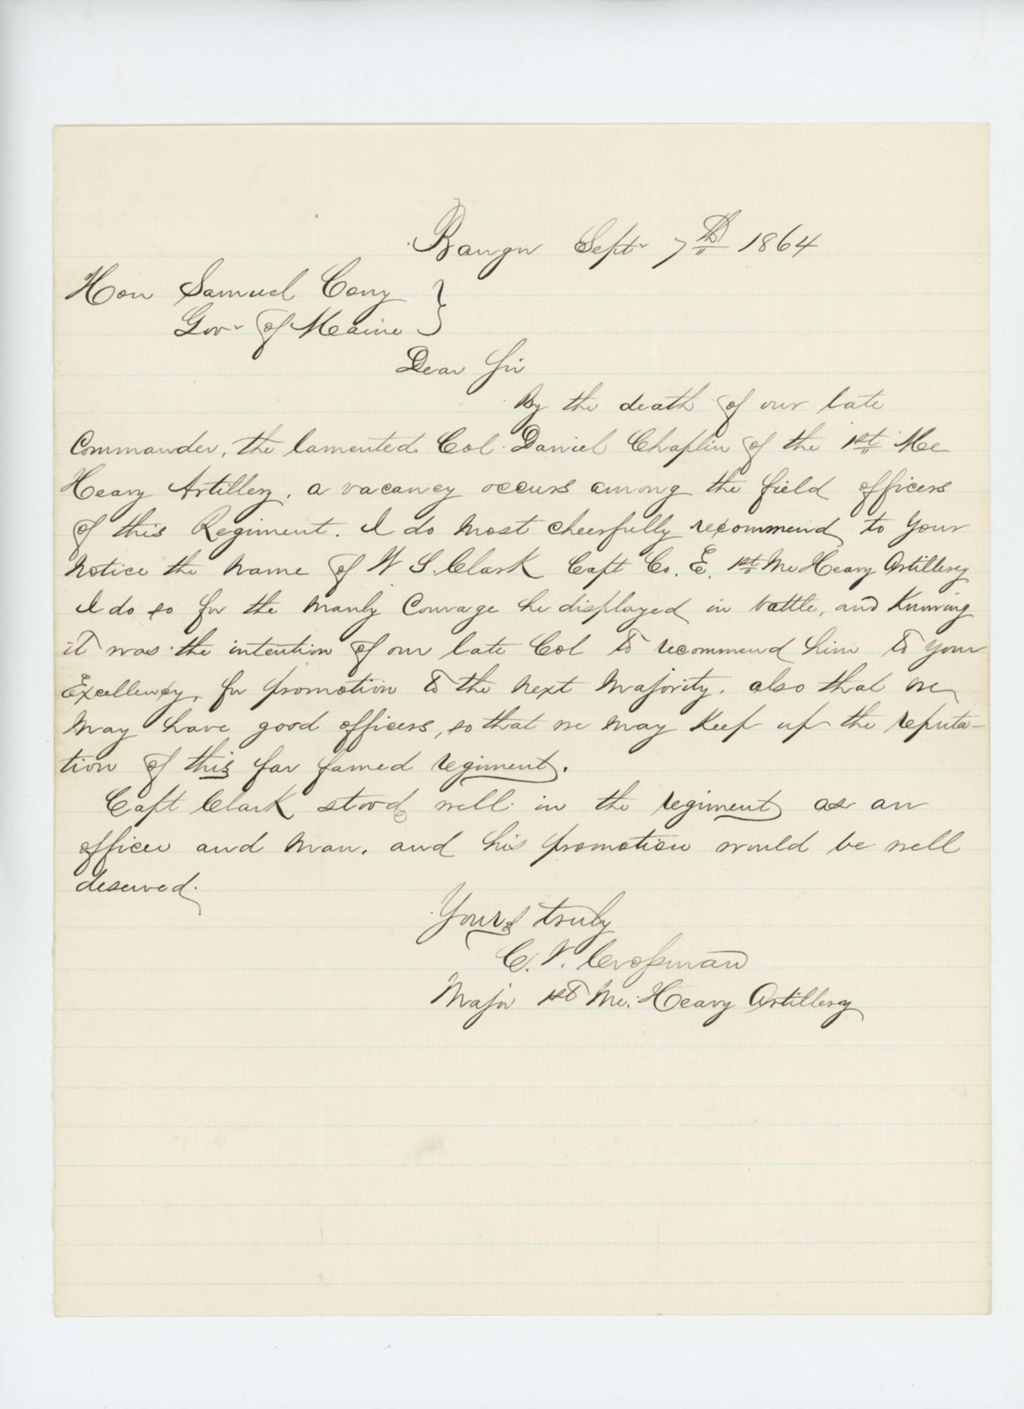 Bangor Sept 7th 1864
Hon Samuel Cony }
Gov of Maine
Dear Sir
By the death of our late
Commander, the lamented Col. Daniel Chaplin of the 1st Me
Heavy Artillery, a vacancy occurs among the field officers
of this Regiment. I do most cheerfully recommend to your
notice the name of W S. Clark Capt Co. E. 1st Me Heavy Artillery
I do so for the manly Courage he displayed in battle, and Knowing
it was the intention of our late Col to recommend him to your
Excellency, for promotion to the next Majority. also that we
may have good officers, so that we may Keep up the reputa-
tion of this far famed regiment.
Capt Clark stood well in the regiment as an
officer and man, and his promotion would be well
deserved.
Yours truly
C. V. Crossman
Major 1st Me. Heavy Artillery